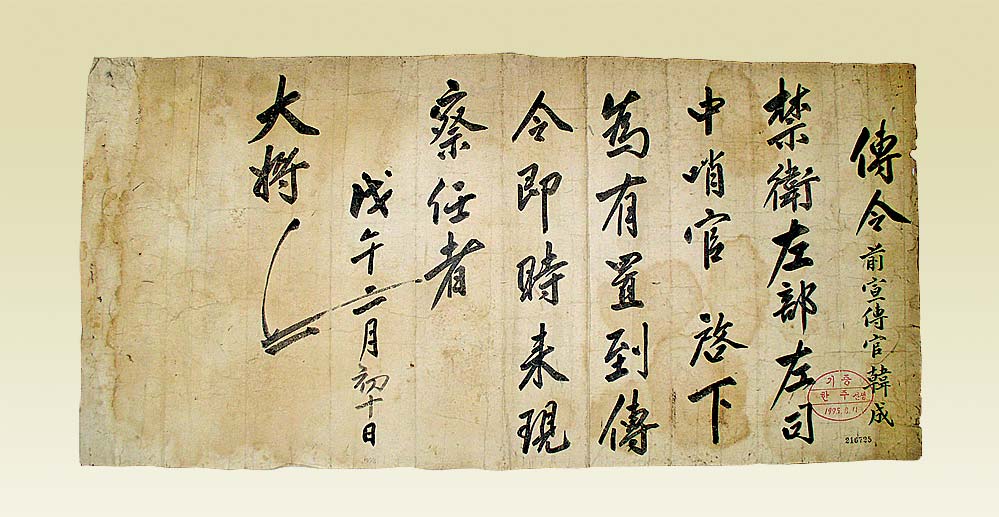 傳令 前宣傳官韓成
禁衛左部左司
中哨官 啓下
爲有置到傳
令即時来現
察任者
戊午二月初十日
大將
기증
한주
216725